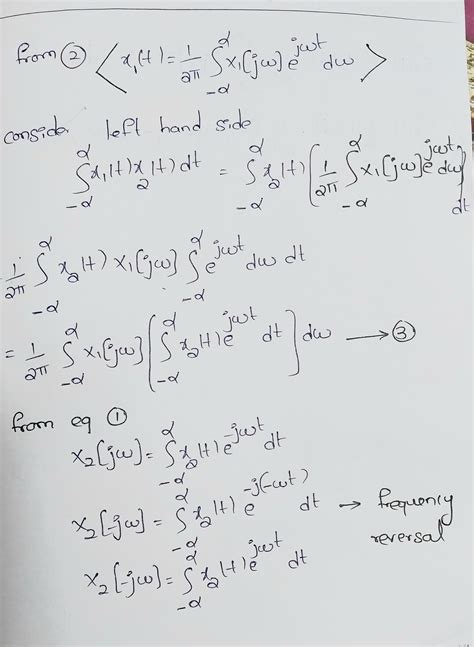 from ② < x₁(t) = 1/2π ∫_{-α}^{α} x₁[jω] e^{jωt} dω >
conside left hand side
∫_{-α}^{α} x₁(t) x₂(t) dt = ∫_{-α}^{α} x₂(t) ( 1/2π ∫_{-α}^{α} x₁[jω] e^{jωt} dω ) dt
1/2π ∫_{-α}^{α} x₂(t) x₁[jω] ∫_{-α}^{α} e^{jωt} dω dt
= 1/2π ∫_{-α}^{α} x₁[jω] [ ∫_{-α}^{α} x₂(t) e^{jωt} dt ] dω → ③
from eq ①
x₂[jω] = ∫_{-α}^{α} x₂(t) e^{-jωt} dt
x₂[-jω] = ∫_{-α}^{α} x₂(t) e^{-j(-ωt)} dt → frequency
reversal
x₂[-jω] = ∫_{-α}^{α} x₂(t) e^{jωt} dt